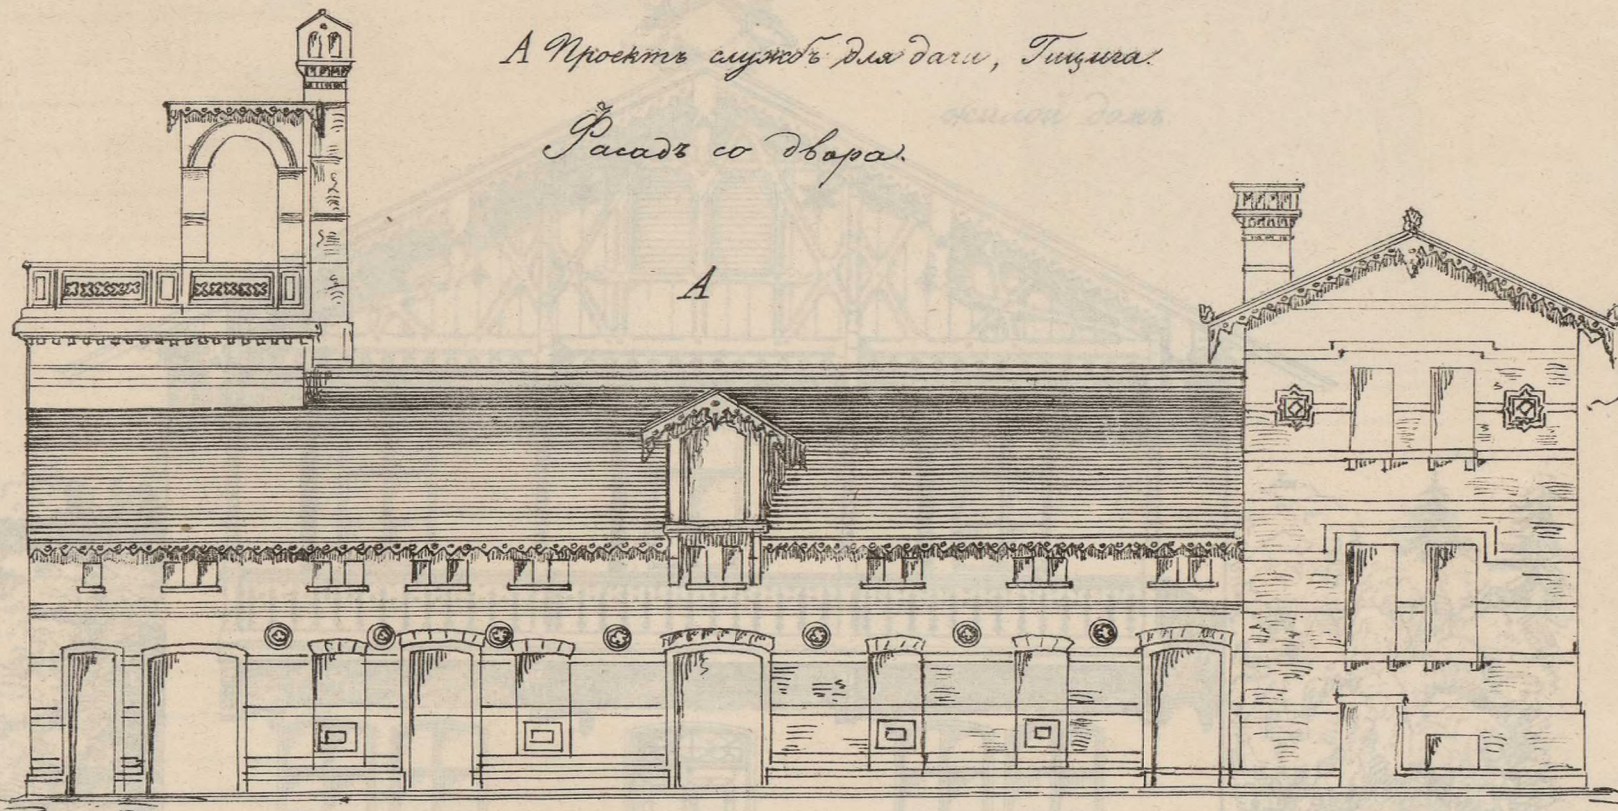 А Проектъ службъ для дачи, Гицига.
Фасадъ со двора.
жилой домъ
А